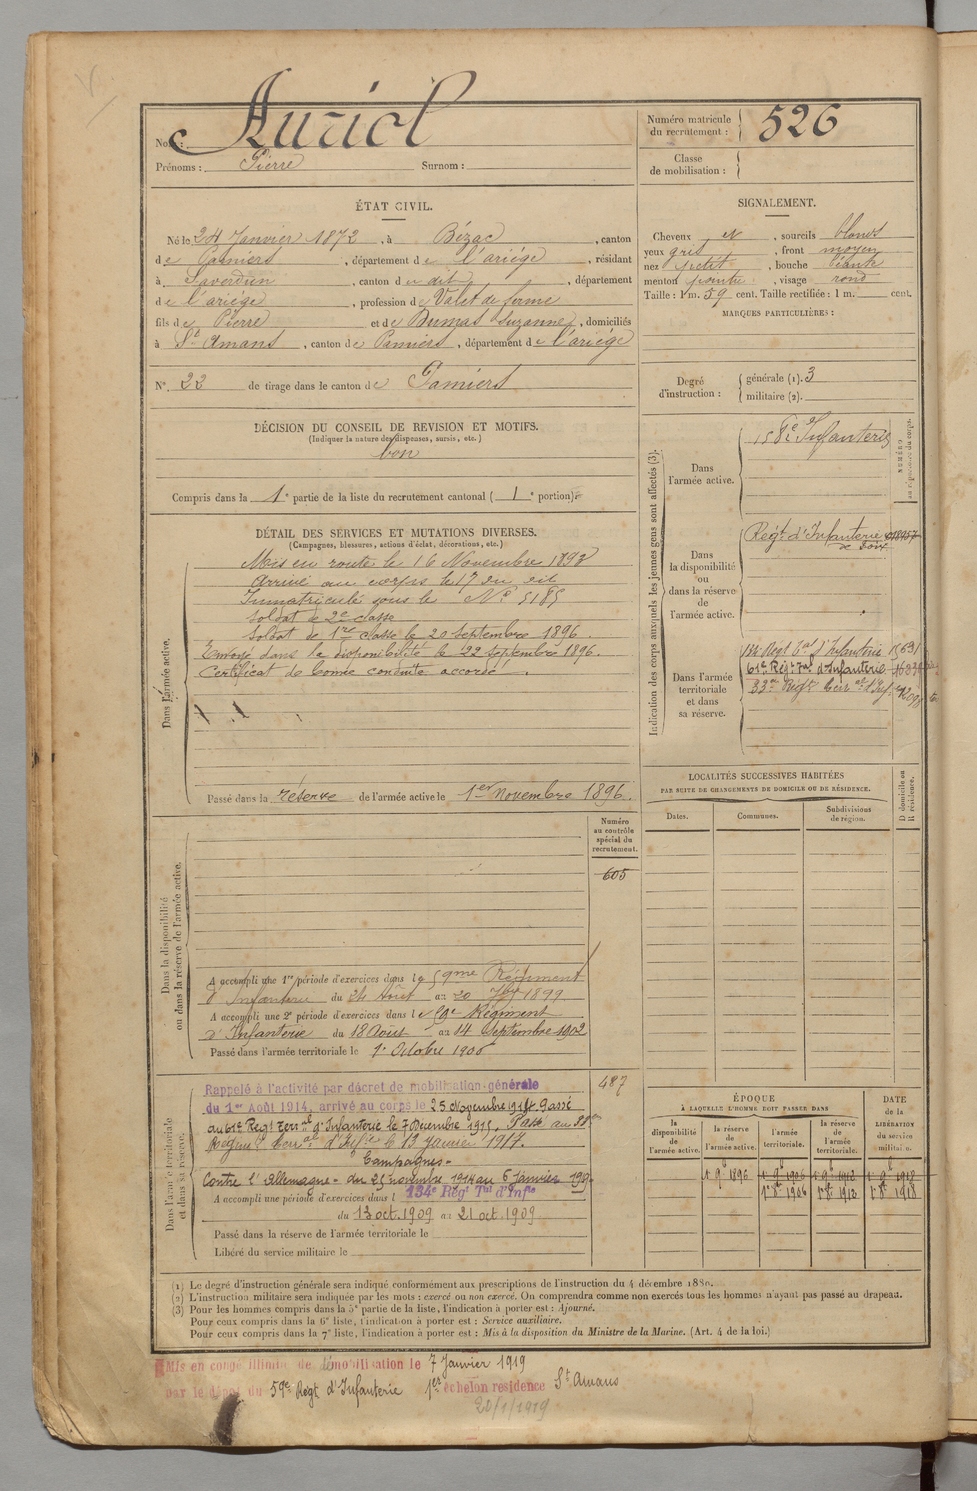 Nom : Auriol
Prénoms : Pierre Surnom :
Numéro matricule du recrutement : 526
Classe de mobilisation :
ÉTAT CIVIL.
Né le 24 Janvier 1872, à Bézac, canton
de Pamiers, département de l'ariége, résidant
à Saverdun, canton du dit, département
de l'ariége, profession de Valet de ferme
fils de Pierre et de Dumas Suzanne, domiciliés
à St Amans, canton de Pamiers, département de l'ariége
N° 22 de tirage dans le canton de Pamiers
SIGNALEMENT.
Cheveux et, sourcils blonds
yeux gris, front moyen
nez petit, bouche béante
menton pointu, visage rond
Taille : 1 m. 59 cent. Taille rectifiée : 1 m. cent.
MARQUES PARTICULIÈRES :
Degré d'instruction : générale (1). 3
militaire (2).
DÉCISION DU CONSEIL DE REVISION ET MOTIFS.
(Indiquer la nature des dispenses, sursis, etc.)
bon
Compris dans la 1e partie de la liste du recrutement cantonal ( 1e portion)
DÉTAIL DES SERVICES ET MUTATIONS DIVERSES.
(Campagnes, blessures, actions d'éclat, décorations, etc.)
Dans l'armée active.
Mis en route le 16 Novembre 1893
Arrivé au corps le 17 du dit
Immatriculé sous le N° 5185
Soldat de 2e classe
Soldat de 1re classe le 20 Septembre 1896.
Envoyé dans la disponibilité le 22 Septembre 1896.
Certificat de bonne conduite accordé.
Passé dans la réserve de l'armée active le 1er Novembre 1896.
Indication des corps auxquels les jeunes gens sont affectés (3).
NUMÉRO au répertoire du corps.
Dans l'armée active.
158e Infanterie
Dans la disponibilité ou dans la réserve de l'armée active.
Régt d'Infanterie
de Foix
Dans l'armée territoriale et dans sa réserve.
Régt Tal d'Infanterie
61e Régt Tal d'Infanterie
33e Régt Terral d'Inf.
LOCALITÉS SUCCESSIVES HABITÉES
PAR SUITE DE CHANGEMENTS DE DOMICILE OU DE RÉSIDENCE.
Dates. Communes. Subdivisions de région. D domicile ou R résidence.
Numéro au contrôle spécial du recrutement.
605
Dans la disponibilité ou dans la réserve de l'armée active.
A accompli une 1re période d'exercices dans le 59me Régiment
d'Infanterie du 24 Août au 20 7bre 1899
A accompli une 2e période d'exercices dans le 59e Régiment
d'Infanterie du 18 Août au 14 Septembre 1902
Passé dans l'armée territoriale le 1er Octobre 1906
487
Dans l'armée territoriale et dans sa réserve.
Rappelé à l'activité par décret de mobilisation générale
du 1er Août 1914, arrivé au corps le 25 Novembre 1914. Passé
au 61e Régt Terral d'Infanterie le 7 Décembre 1915. Passé au 33e
Régiment Terral d'Infie le 13 Janvier 1917.
Campagnes -
Contre l'Allemagne - du 25 novembre 1914 au 6 Janvier 1919
A accompli une période d'exercices dans l 134e Régt Tal d'Infie
du 13 oct. 1909 au 21 oct. 1909
Passé dans la réserve de l'armée territoriale le
Libéré du service militaire le
ÉPOQUE
À LAQUELLE L'HOMME DOIT PASSER DANS
DATE de la LIBÉRATION du service militaire.
la disponibilité de l'armée active. la réserve de l'armée active. l'armée territoriale. la réserve de l'armée territoriale.
1 9b 1896 1 9b 1906 1 9b 1912 1 9b 1918
1er 8b 1906 1er 8b 1912 1er 8b 1918
(1) Le degré d'instruction générale sera indiqué conformément aux prescriptions de l'instruction du 4 décembre 1889.
(2) L'instruction militaire sera indiquée par les mots : exercé ou non exercé. On comprendra comme non exercés tous les hommes n'ayant pas passé au drapeau.
(3) Pour les hommes compris dans la 5e partie de la liste, l'indication à porter est : Ajourné.
Pour ceux compris dans la 6e liste, l'indication à porter est : Service auxiliaire.
Pour ceux compris dans la 7e liste, l'indication à porter est : Mis à la disposition du Ministre de la Marine. (Art. 4 de la loi.)
Mis en congé illimité de démobilisation le 7 Janvier 1919
par le dépôt du 59e Régt d'Infanterie 1er échelon residence St Amans
20/1/1919